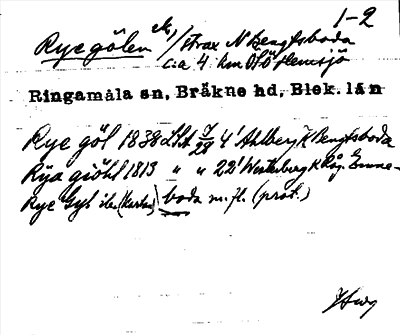 1-2
Rye gölen etc, / strax N Bengtsboda
c:a 4 km NÖ Hemsjö
Ringamåla sn, Bräkne hd, Blek. län
Rye göl 1838 LSA 7/29 4' Ahlberg K Bengtsboda
Rya giöhl 1813 " " 22' Westerberg K Råg. Emne-
Rye Gyl ib. (kartan) boda m. fl. (prot.)